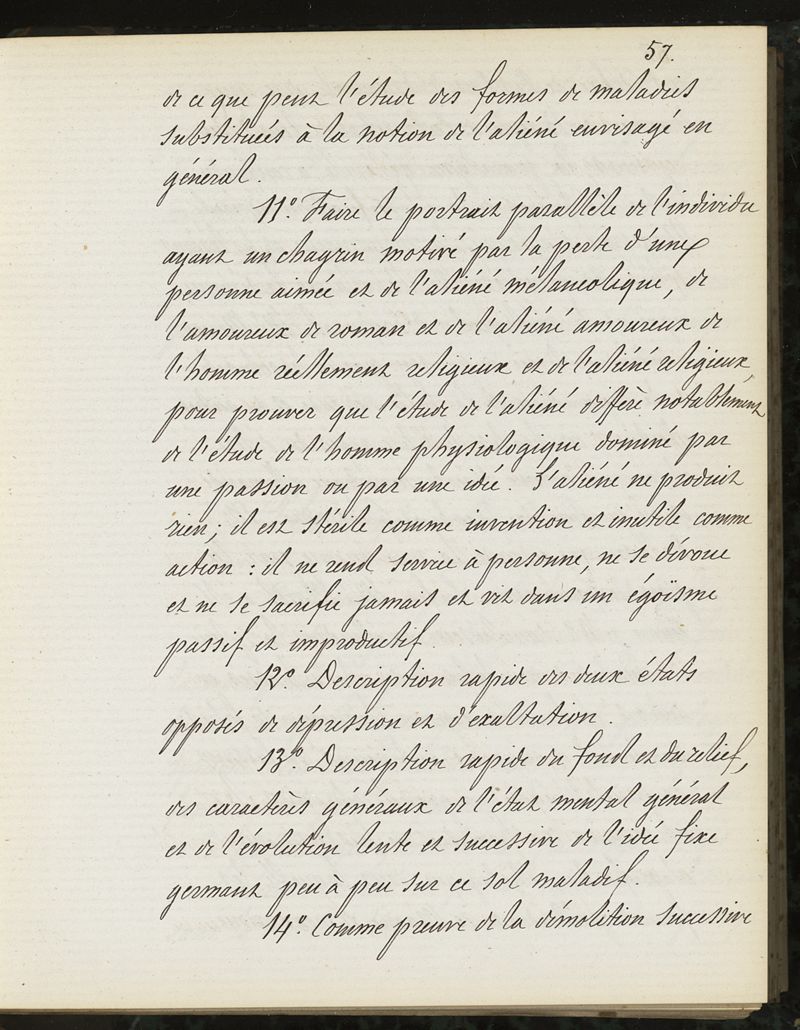 57.
de ce que peut l'étude des formes de maladies
substituées à la notion de l'aliéné envisagé en
général.
11º. Faire le portrait parallèle de l'individu
ayant un chagrin motivé par la perte d'une
personne aimée et de l'aliéné mélancolique, de
l'amoureux de roman et de l'aliéné amoureux de
l'homme réellement religieux et de l'aliéné religieux,
pour prouver que l'étude de l'aliéné diffère notablement
de l'étude de l'homme physiologique dominé par
une passion ou par une idée. L'aliéné ne produit
rien; il est stérile comme invention et inutile comme
action : il ne rend service à personne, ne se dévoue
et ne se sacrifie jamais et vit dans un égoïsme
passif et improductif.
12º. Description rapide des deux états
opposés de dépression et d'exaltation.
13º. Description rapide du fond et du relief,
des caractères généraux de l'état mental général
et de l'évolution lente et successive de l'idée fixe
germant peu à peu sur ce sol maladif.
14º. Comme preuve de la démolition successive